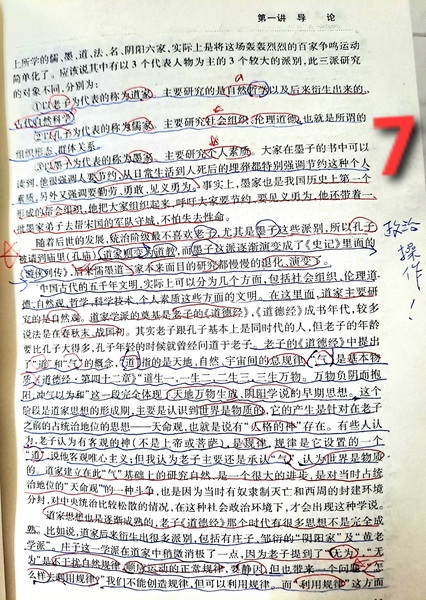 第一讲 导 论
上所学的儒、墨、道、法、名、阴阳六家，实际上是将这场轰轰烈烈的百家争鸣运动
简单化了。应该说其中有以3个代表人物为主的3个较大的派别，此三派研究
的对象不同，分别为：
①以老子为代表的称为道家，主要研究的是自然哲学以及后来衍生出来的
古代自然科学。
②以孔子为代表的称为儒家，主要研究社会组织、伦理道德，也就是所谓的
组织形态、群体关系。
③以墨子为代表的称为墨家，主要研究个人素质。大家在墨子的书中可以
读到，他很强调人要节约，从日常生活到人死后的埋葬都特别强调节约这种个人
素质，另外又强调要勤劳、勇敢、见义勇为。事实上，墨家也是我国历史上第一个
形成的帮会组织，他把大家组织起来，呼吁大家要节约、要见义勇为，他还带着一
批墨家弟子去帮宋国的军队守城，不怕失去性命。
随着后世的发展，统治阶级最不喜欢老子，尤其是墨子这些派别，所以孔子
被请到庙里（孔庙），道家则变为道教，而墨子这派逐渐演变成了《史记》里面的
《游侠列传》，后来儒墨道三家本来面目的研究都慢慢的退化、演变了。
中国古代的五千年文明，实际上可以分为几个方面，包括社会组织、伦理道
德、自然观、哲学、科学技术、个人素质这些方面的文明。在这里面，道家主要研
究的是自然观。道家学派的奠基是老子的《道德经》，《道德经》成书年代，较多
说法是在春秋末、战国初。其实老子跟孔子基本上是同时代的人，但老子的年龄
要比孔子大得多，孔子年轻的时候就曾经问道于老子。老子的《道德经》中提出
了“道”和“气”的概念，“道”指的是天地、自然、宇宙间的总规律，“气”是基本物
质，《道德经·第四十二章》“道生一，一生二，二生三，三生万物。万物负阴而抱
阳，冲气以为和”这一段完全体现了天地万物生成、阴阳学说的早期思想。这个
阶段是道家思想的形成期，主要是认识到世界是物质的，它的产生是针对在老子
之前的占统治地位的思想——天命观，也就是说有“人格的神”存在。有些人认
为，老子认为有客观的神（不是上帝或菩萨），是规律，规律是它设置的一个
“道”，说他客观唯心主义；但我认为老子主要还是承认“气”，认为世界是物质
的。道家建立在此“气”基础上的研究自然，是一个很大的进步，是对当时占统
治地位的“天命观”的一种斗争，也是因为当时有奴隶制灭亡和西周的封建环境
分封，对中央统治比较松散的情况，在这种社会政治环境下，才会出现这种学说。
道家思想也是逐渐成熟的，老子《道德经》那个时代有很多思想不是完全成
熟。比如说，道家后来衍生出很多派别，包括有庄子、邹衍的“阴阳家”及“黄老
学派”。庄子这一学派在道家中稍微消极了一点，因为老子提到了“无为”，“无
为”是不干扰自然规律，顺应运动的正常规律，要静因，但也带来一个问题：“怎
么样去利用规律”，我们不能创造规律，但可以利用规律。而“利用规律”这方面
7
政治
操
作！